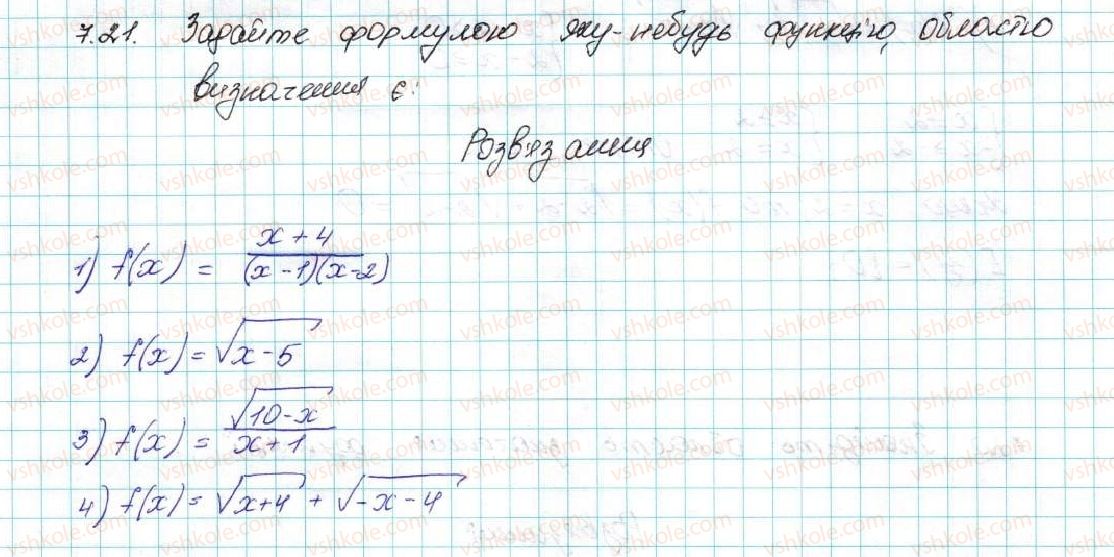 7.21. Задайте формулою яку-небудь функцію, областю
визначення є:
Розв'язання
1) f(x) = (x + 4)/((x - 1)(x - 2))
2) f(x) = √(x - 5)
3) f(x) = √(10 - x)/(x + 1)
4) f(x) = √(x + 4) + √(-x - 4)
vshkole.com